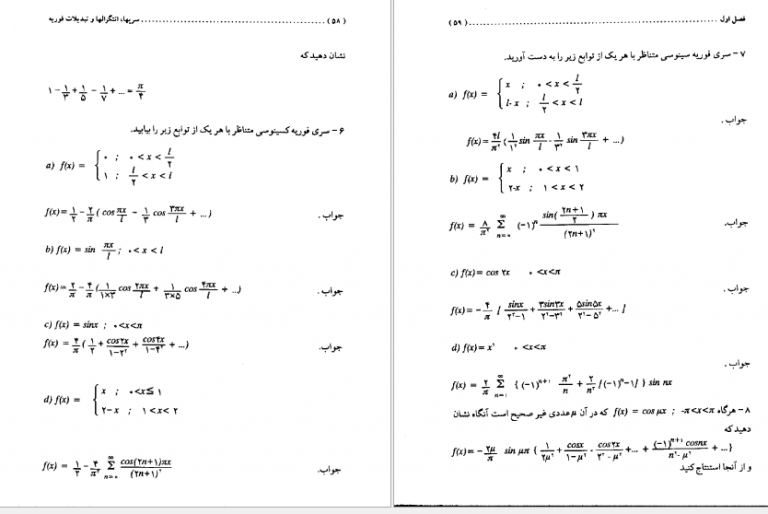 (۵۸) ........ سریها، انتگرالها و تبدیلات فوریه
نشان دهید که
۱ - ۱/۳ + ۱/۵ - ۱/۷ + ... = π/۴
۶ - سری فوریه کسینوسی متناظر با هر یک از توابع زیر را بیابید.
a) f(x) = { ۰ ; ۰ < x < l/۲
۱ ; l/۲ < x < l
f(x) = ۱/۲ - ۲/π ( cos πx/l - ۱/۳ cos ۳πx/l + ...) جواب .
b) f(x) = sin πx/l ; ۰ < x < l
f(x) = ۲/π - ۴/π ( ۱/۱×۳ cos ۲πx/l + ۱/۳×۵ cos ۴πx/l + ...) جواب .
c) f(x) = sinx ; ۰ <x<π
f(x) = ۴/π ( ۱/۲ + cos۲x/۱-۲² + cos۴x/۱-۴² + ...) جواب.
d) f(x) = { x ; ۰ <x≤ ۱
۲-x ; ۱ <x< ۲
f(x) = ۱/۲ - ۴/π² Σ n=۰ ∞ cos(۲n+۱)πx/(۲n+۱)² جواب.
فصل اول ........ (۵۹)
۷ - سری فوریه سینوسی متناظر با هر یک از توابع زیر را به دست آورید.
a) f(x) = { x ; ۰ < x < l/۲
l-x ; l/۲ < x < l
جواب .
f(x) = ۴l/π² ( ۱/۱² sin πx/l - ۱/۳² sin ۳πx/l + ...)
b) f(x) = { x ; ۰ < x < ۱
۲-x ; ۱ < x < ۲
جواب.
f(x) = ۸/π² Σ n=۰ ∞ (-۱)ⁿ sin(۲n+۱/۲) πx/(۲n+۱)²
c) f(x) = cos ۲x ۰ <x<π
جواب .
f(x) = - ۴/π [ sinx/۲²-۱ + ۳sin۳x/۲²-۳² + ۵sin۵x/۲²-۵² + ... ]
d) f(x) = x² ۰ <x<π
جواب .
f(x) = ۲/π Σ n=۱ ∞ { (-۱)ⁿ⁺¹ π²/n + ۲/n³ [(-۱)ⁿ-۱] } sin nx
۸ - هرگاه f(x) = cos μx ; -π<x<π که در آن μ عددی غیر صحیح است آنگاه نشان
دهید که
f(x) = - ۲μ/π sin μπ { ۱/۲μ² + cosx/۱-μ² - cos۲x/۲²-μ² + ... + (-۱)ⁿ⁺¹ cosnx/n²-μ² + ...}
و از آنجا استنتاج کنید